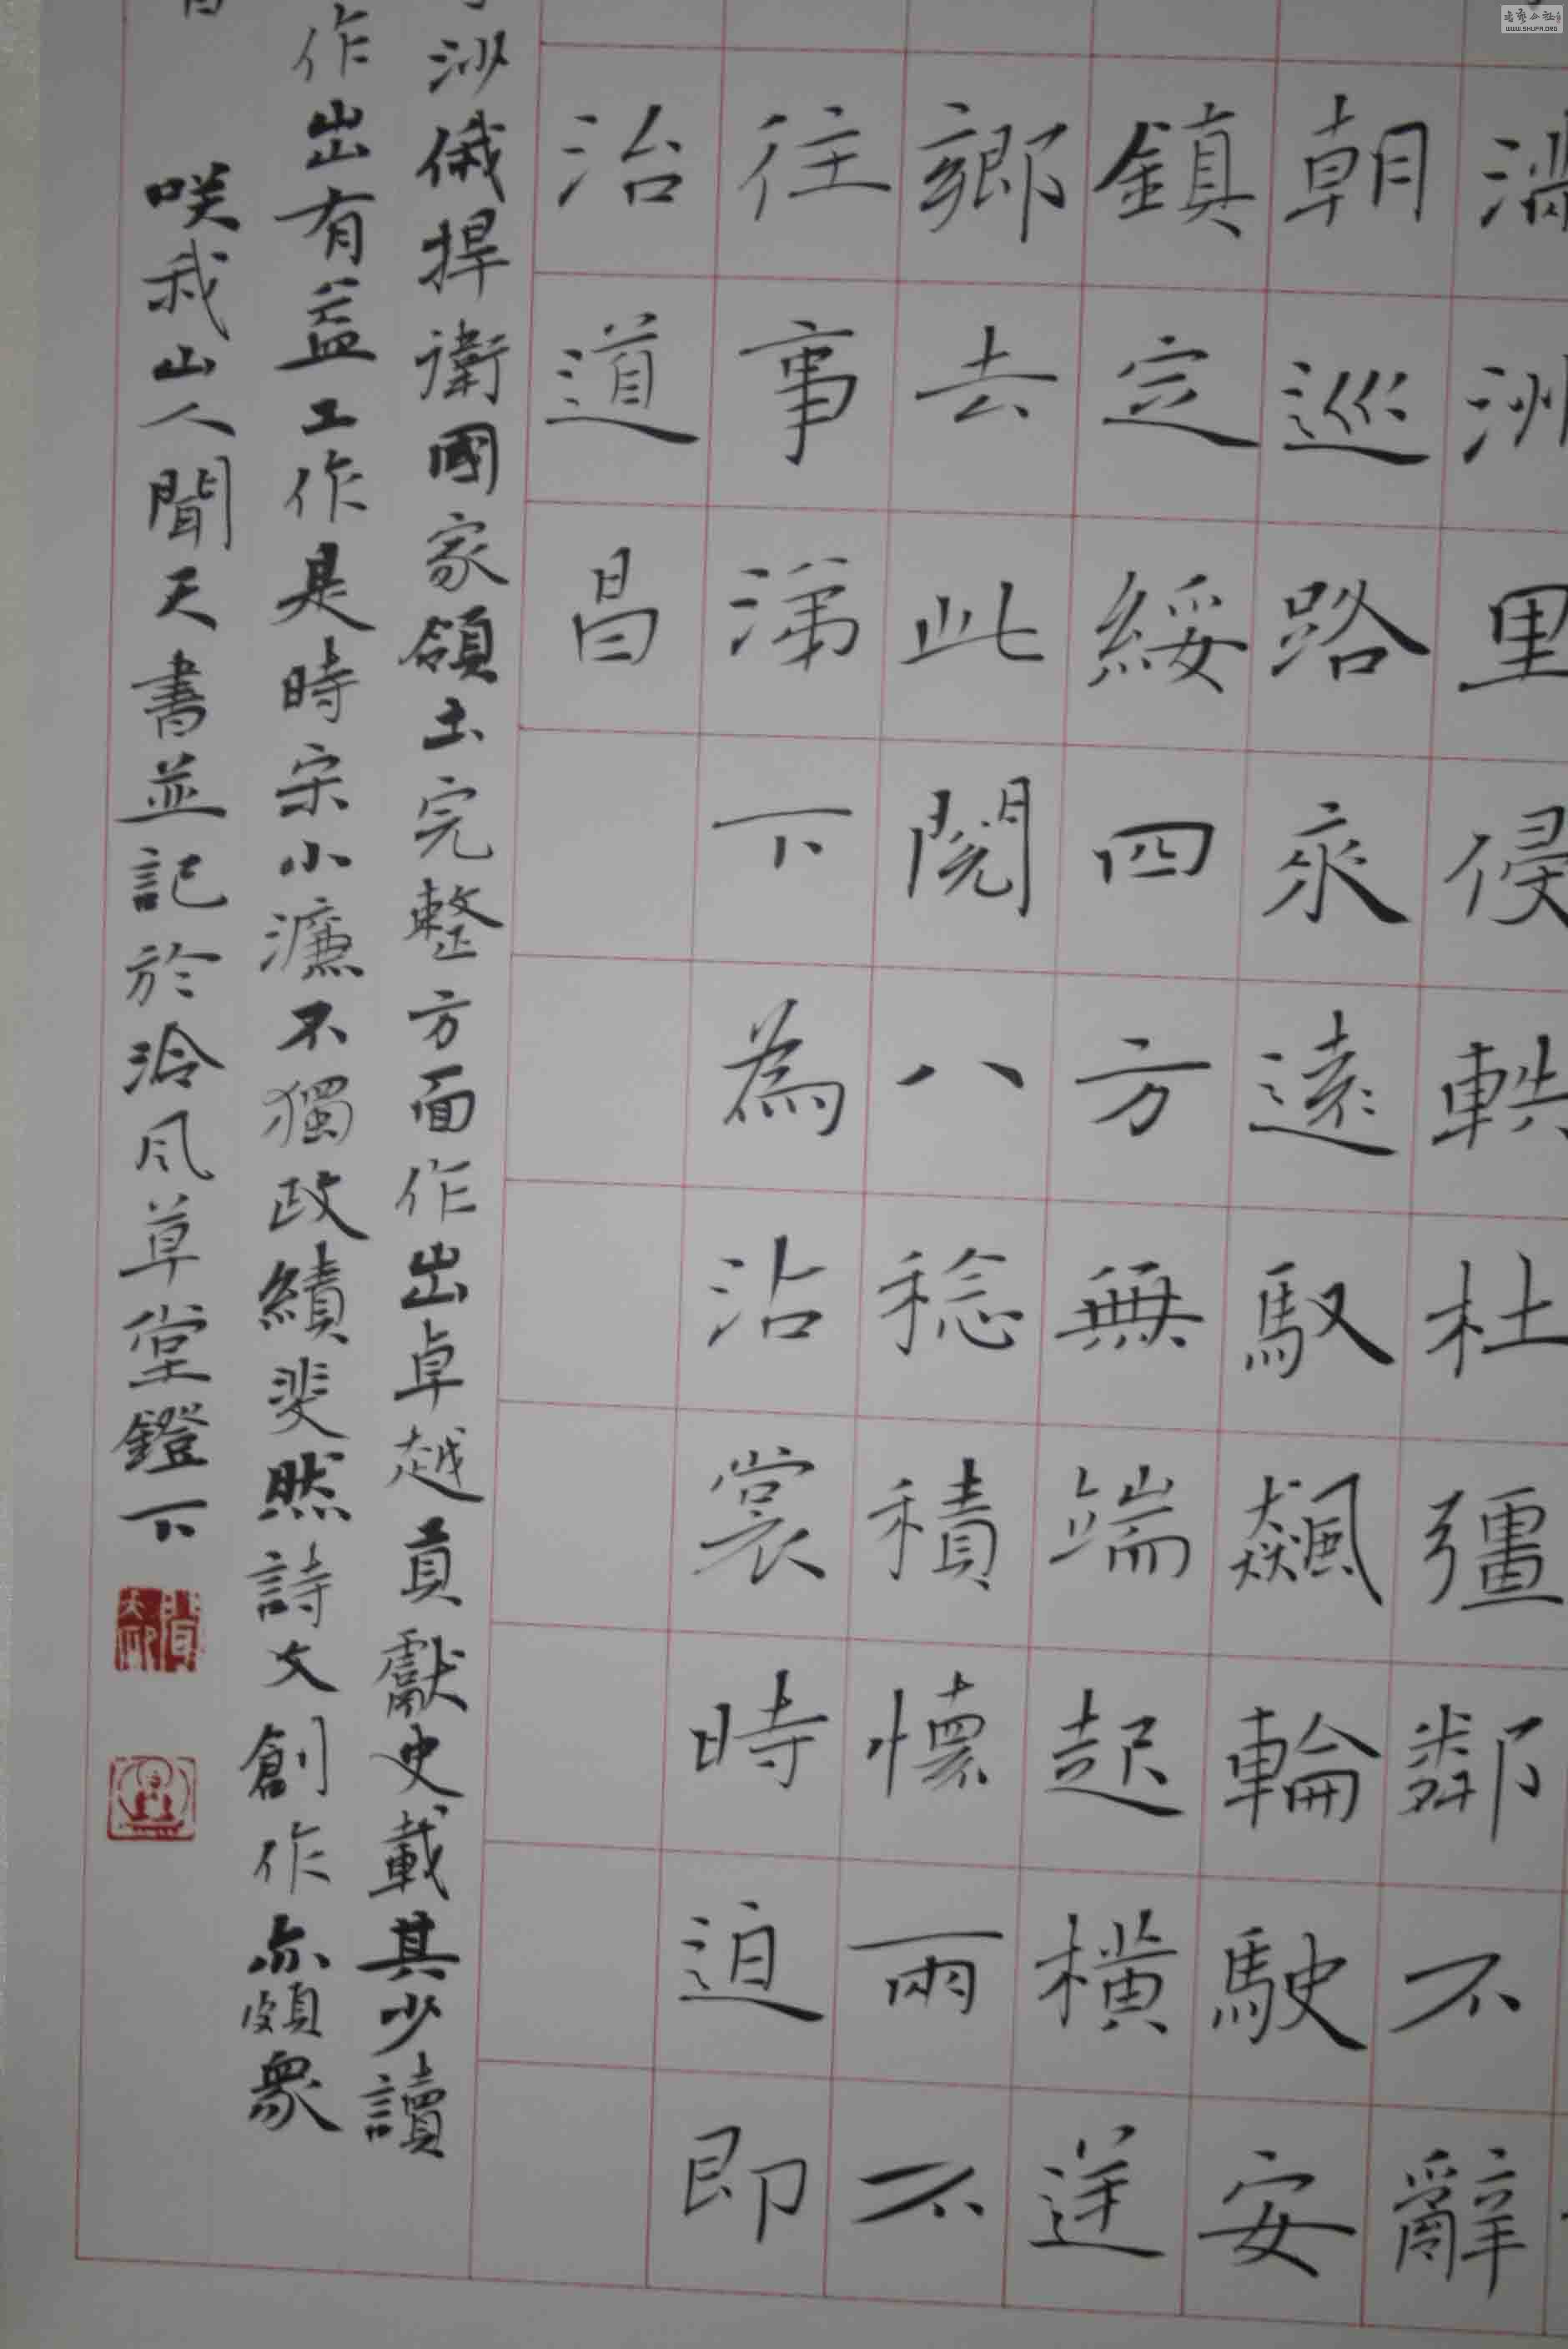 滿洲里侵軼杜疆鄰不辭
朝巡路永遠馭飆輪駛安
鎮定綏四方無端起橫逆
鄉去此閱八稔積懷兩不
往事涕下為沾裳時迫即
治道昌
沙俄捍衛國家領土完整方面作出卓越貢獻史載其少讀
作出有益工作是時宋小濂不獨政績斐然詩文創作亦頗衆
咲我山人聞天書並記於泠风草堂鐙下
WWW.SHUFA.ORG